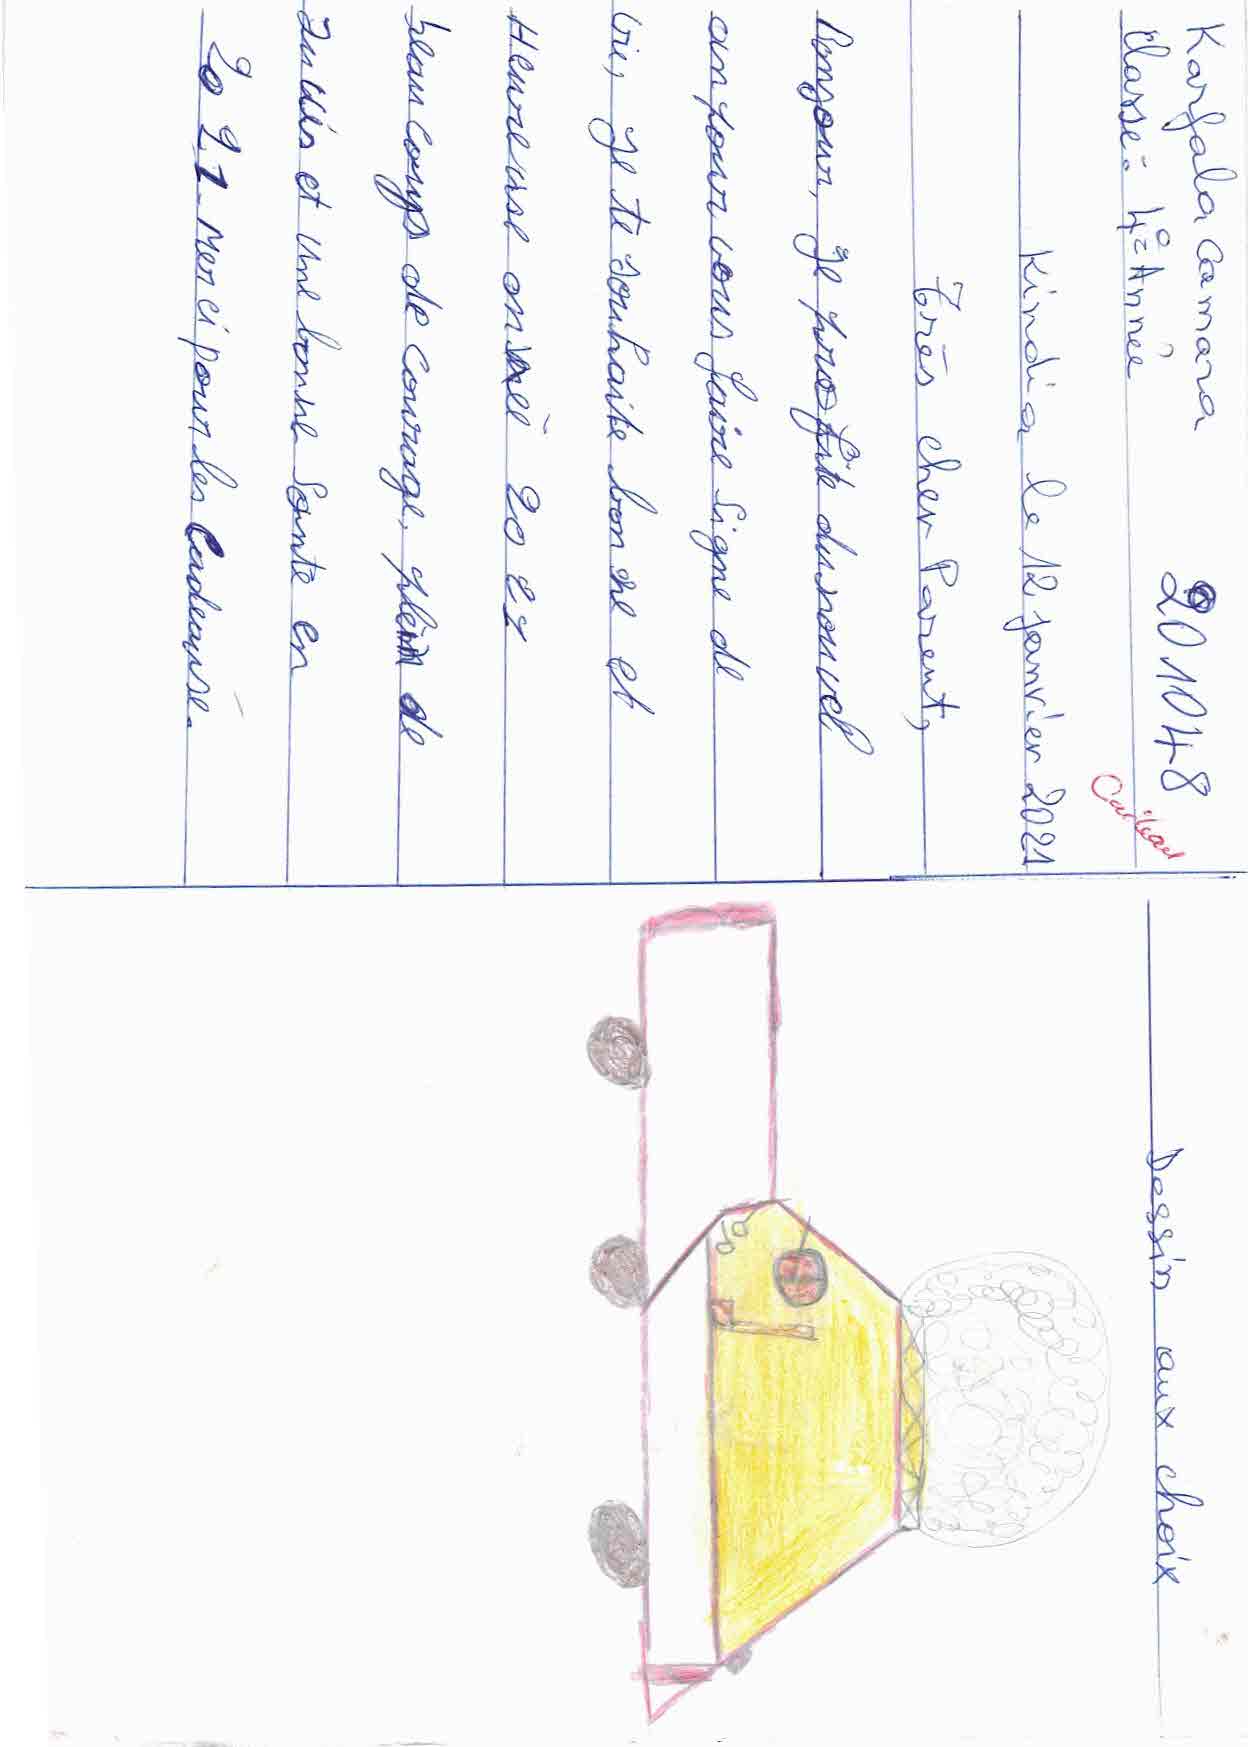 Karfala Camara 201048
Classe: 4º= Année
Kindia le 12 janvier 2021
Très cher Parent,
Bonjour, je profite du nouvel
an pour vous faire signe de
vie, je te souhaite bonne et
Heureuse année 2021
beaucoups de courage, plein de
et une bonne Santé en
2021. Merci pour les Cadeause.
Dessin aux choix